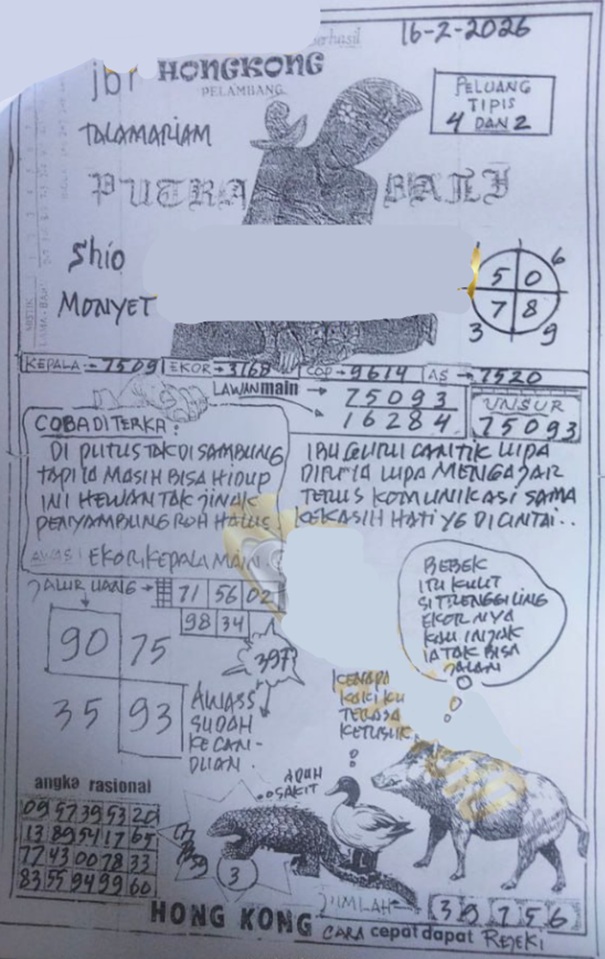 berhasil
16-2-2026
jbr HONGKONG
PELAMBANG.
PELUANG
TIPIS
4 DAN 2
TALAMARIAM
PUTRA BALI
Shio
MONYET
6
5 0
7 8
3 9
KEPALA → 7509 EKOR → 3168 COP → 9614 AS → 7520
LAWAN main → 75093
16284
UNSUR
75093
COBA DITERKA:
DI PUTUS TAK DI SAMBUNG
TAPI IA MASIH BISA HIDUP
INI HEWAN TAK JINAK
PENYAMBUNG ROH HALUS
IBU GURU CANTIK LUPA
DIRINYA LUPA MENGAJAR
TERUS KOMUNIKASI SAMA
KEKASIH HATI YG DICINTAI..
AWAS: EKOR/KEPALA MAIN
JALUR UANG → 71 56 02
98 34
397
90 75
35 93
AWASS
SUDAH
KECAN-
DUAN.
BEBEK
ITU KULIT
SI TRENGGILING
EKOR NYA
KAU INJAK
IA TAK BISA
JALAN
KENAPA
KAKI KU
TERASA
KETUSUK
ADUH
..SAKIT
angka rasional
09 57 39 53 20
13 89 54 17 65
77 43 00 78 33
83 55 94 99 60
3
JUMLAH → 39 756
HONG KONG CARA cepat dapat REJEKI